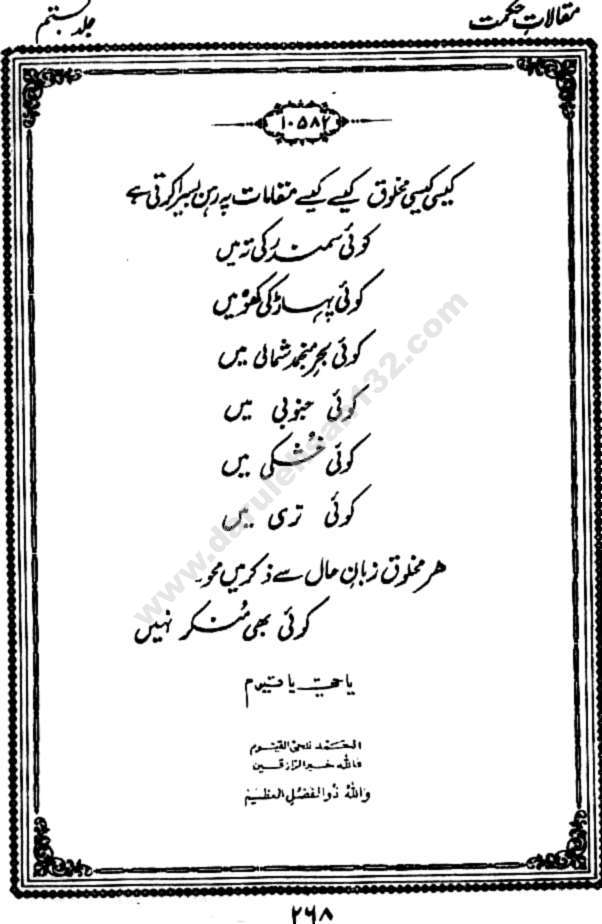 مقالاتِ حکمت
جلد بستم
۱۰۵۸۲
کیسی کیسی مخلوق کیسے کیسے مقامات پہ رہن بسیرا کرتی ہے
کوئی سمندر کی تہ میں
کوئی پہاڑ کی کھوہ میں
کوئی بحرِ منجمد شمالی میں
کوئی جنوبی میں
کوئی خُشکی میں
کوئی تری میں
ھر مخلوق زبانِ حال سے ذکر میں محو۔
کوئی بھی مُنکر نہیں
یا حیّ یا قیوم
الحَمد للحی القیوم
فالله خیر الرازقین
والله ذُوالفضل العظیم
www.darulehsan132.com
۲۶۸